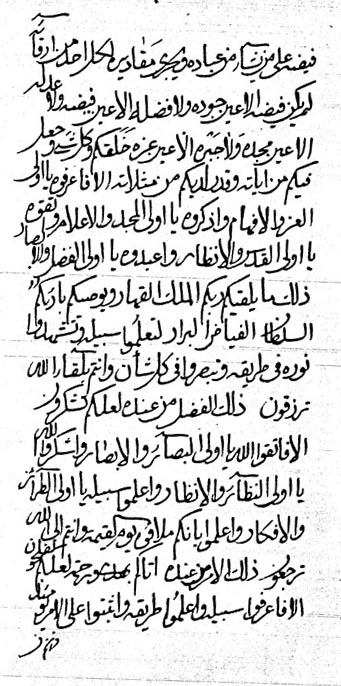 فيضه على من يشاء من عباده ويجرى مقادير الحل احل من ارقاء
لم يكن فيضه الا عين جوده ولا فضله الا عين فيضه ولا عدله
الا عين مجده ولا خبره الا عين عزه خلقكم وكل شئ وجعل
فيكم من اياته وقدر لديكم من مثلاته الا فاعرفوه يا اولى
العز والافهام واذكروه يا اولى المجد والاعلام واتقوه
يا اولى القدس والانظار واعبدوه يا اولى الفضل والابصار
ذلك ما يلقيكم ربكم الملك القهار ويوصيكم بارئكم
السلطان الفياض البرار لتعلموا سبيله وتشهدوا
نوره فى طريقه وتبصروا فى كل شأن وانتم بلقاء الله
ترزقون ذلك الفضل من عنده لعلكم تشكرون
الا فاتقوا الله يا اولى البصائر والابصار واشكروا لله
يا اولى النظائر والانظار واعلموا سبيله يا اولى الطرائز
والافكار واعلموا بانكم ملاقى يوم القيمة وانتم الى الله
ترجعون ذلك الامر من عنده اتاكم رحمة لعلكم تفلحون
الا فاعرفوا سبيله واعلموا طريقه واثبتوا على الامر